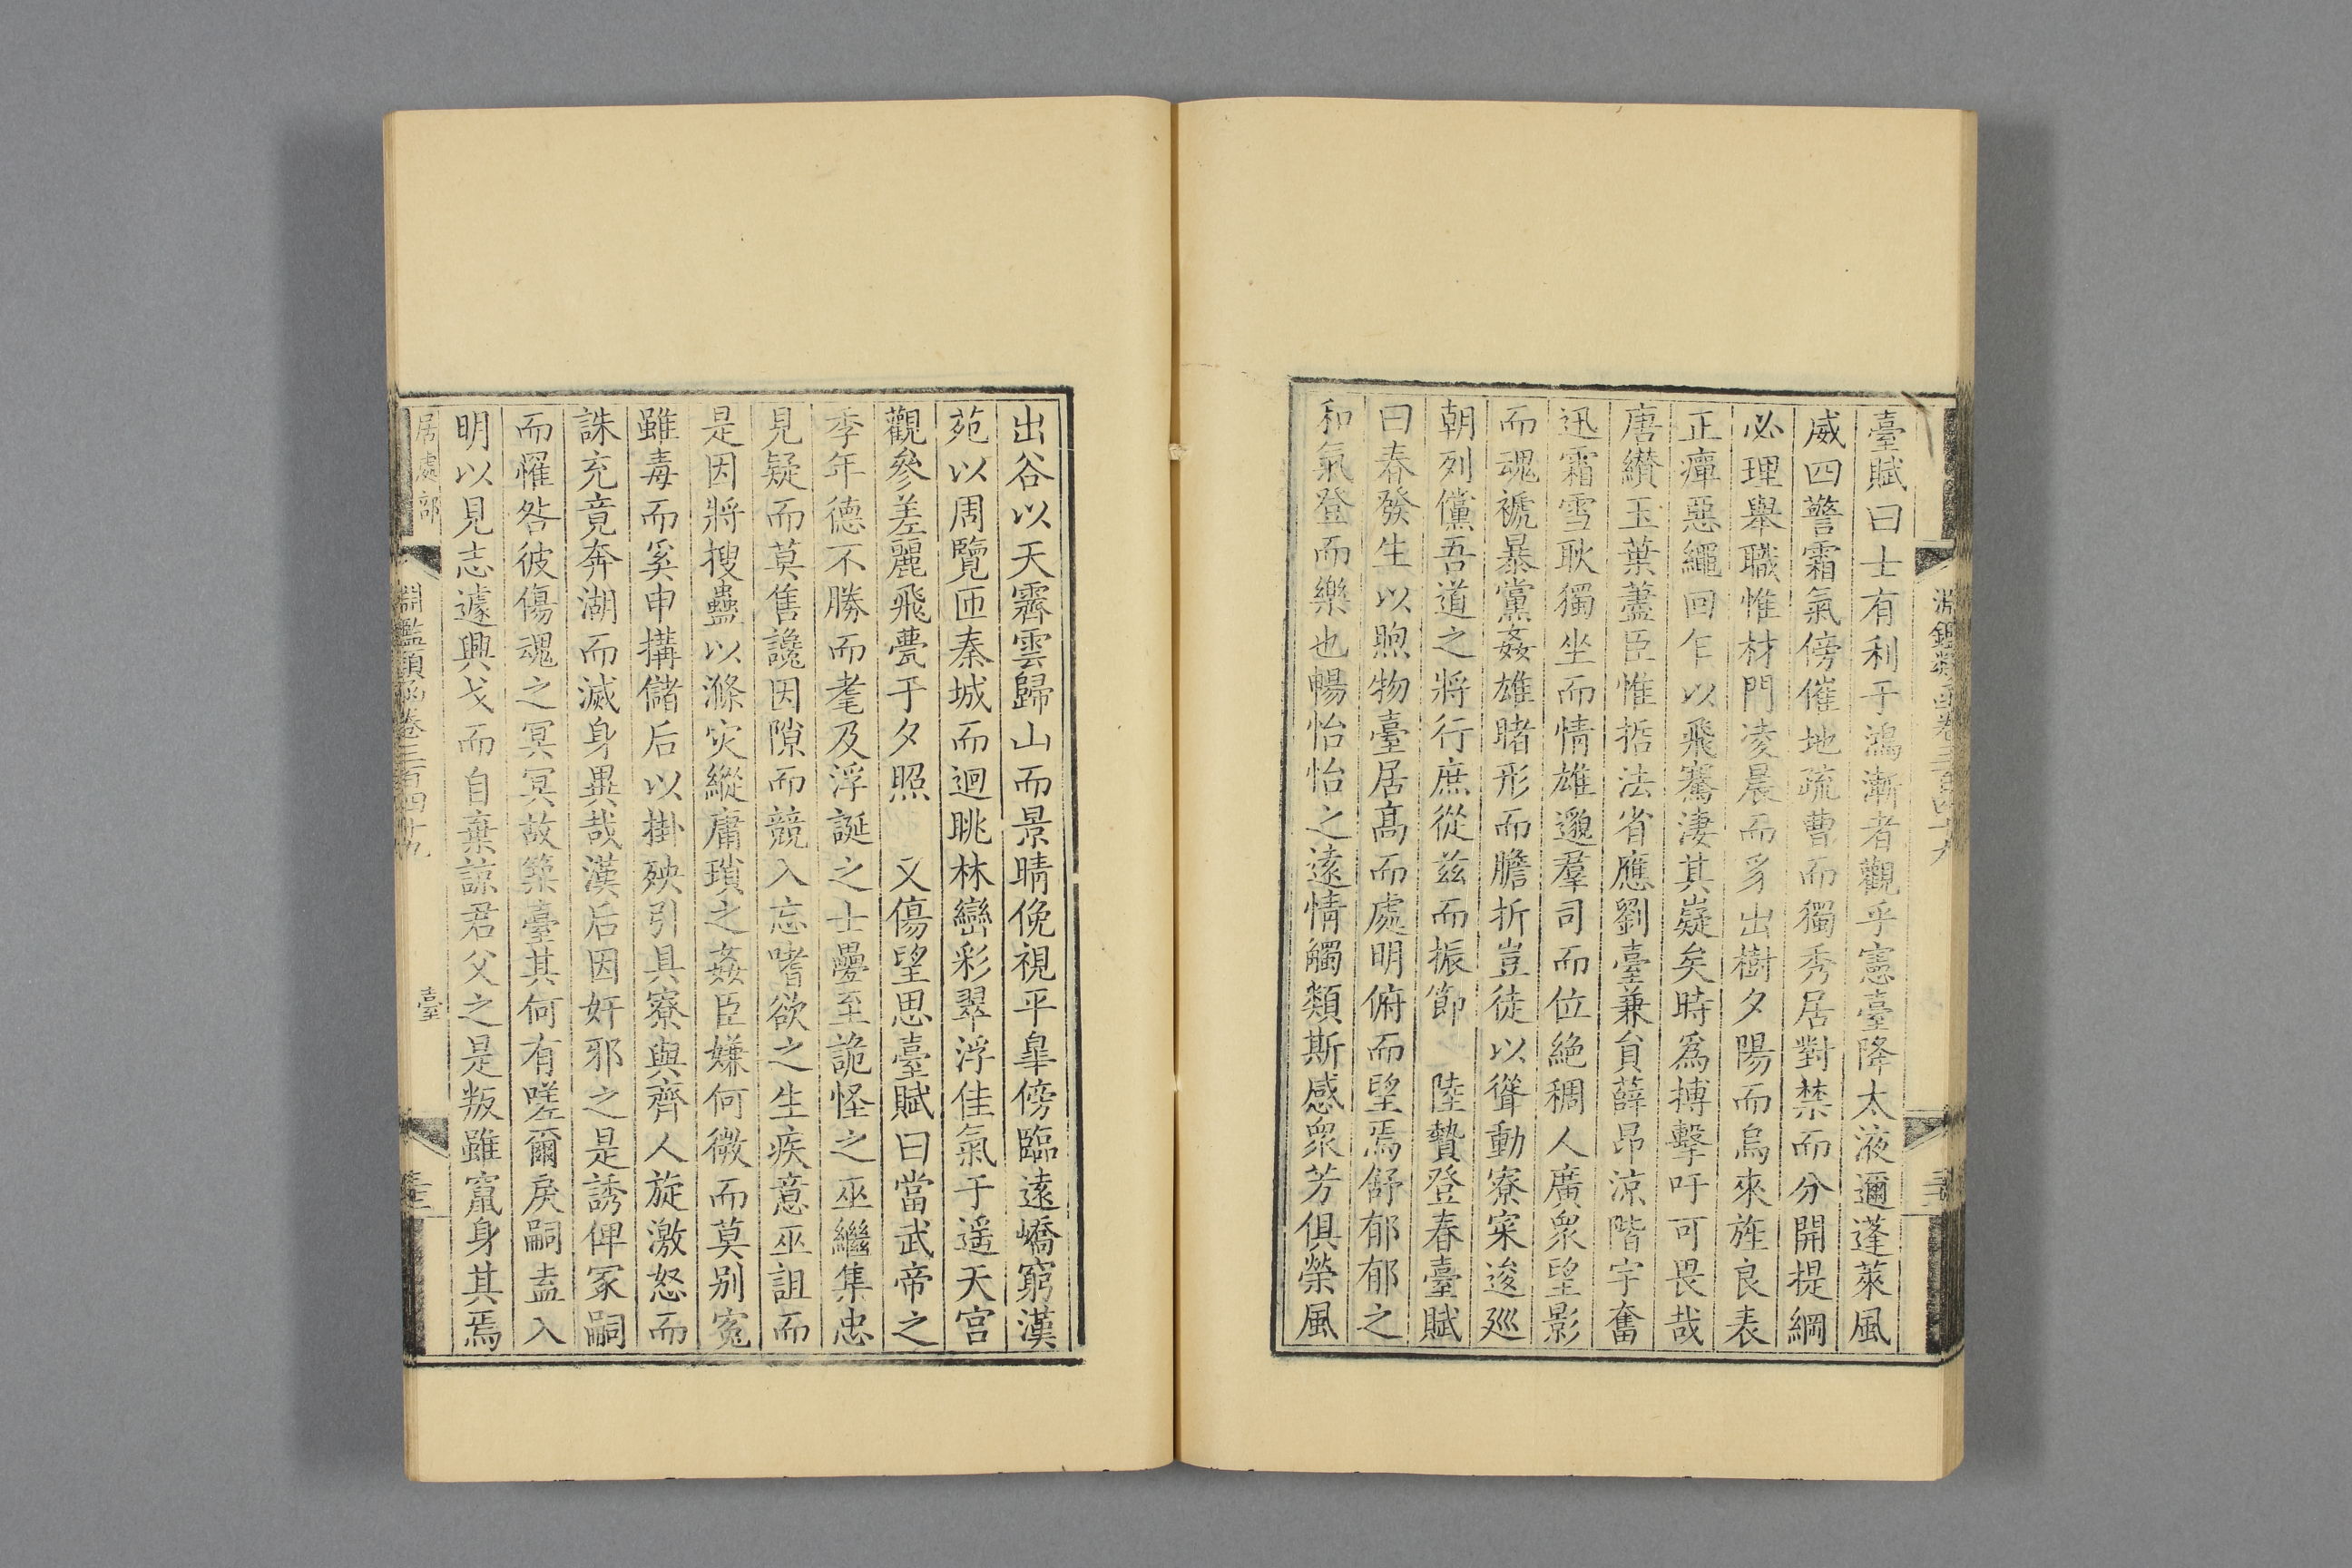 淵鑑類函卷三百四十九
臺賦曰士有利于鴻漸者觀乎憲臺降太液邇蓬萊風
威四警霜氣傍催地疏曹而獨秀居對禁而分開提綱
必理舉職惟材門凌晨而豸出樹夕陽而烏來旌良表
正癉惡繩回乍以飛騫淒其嶷矣時爲搏擊吁可畏哉
唐纉玉葉藎臣惟㧱法省應劉臺兼貟薛昂涼階宇奮
迅霜雪耿獨坐而情雄邈羣司而位絶稠人廣衆望影
而魂褫暴黨姦雄睹形而膽折豈徒以聳動寮寀逡廵
朝列儻吾道之將行庶從兹而振節　陸贄登春臺賦
曰春發生以煦物臺居髙而處明俯而望焉舒郁郁之
和氣登而樂也暢怡怡之遠情觸類斯感衆芳俱榮風
出谷以天霽雲歸山而景晴俛視平臯傍臨遠嶠窮漢
苑以周覽匝秦城而迥眺林巒彩翠浮佳氣于遥天宫
觀參差麗飛甍于夕照　又傷望思臺賦曰當武帝之
季年德不勝而耄及浮誕之士疊至詭怪之巫繼集忠
見疑而莫售讒因隙而競入忘嗜欲之生疾意巫詛而
是因將搜蠱以滌灾縱庸瑣之姦臣嫌何微而莫别寃
雖毒而奚申搆儲后以掛殃引具寮與齊人旋激怒而
誅充竟奔湖而滅身異哉漢后因奸邪之是誘俾冢嗣
而罹咎彼傷魂之冥冥故築臺其何有嗟爾戾嗣盍入
明以見志遽興戈而自棄諒君父之是叛雖竄身其焉
居處部
淵鑑類函卷三百四十九
臺